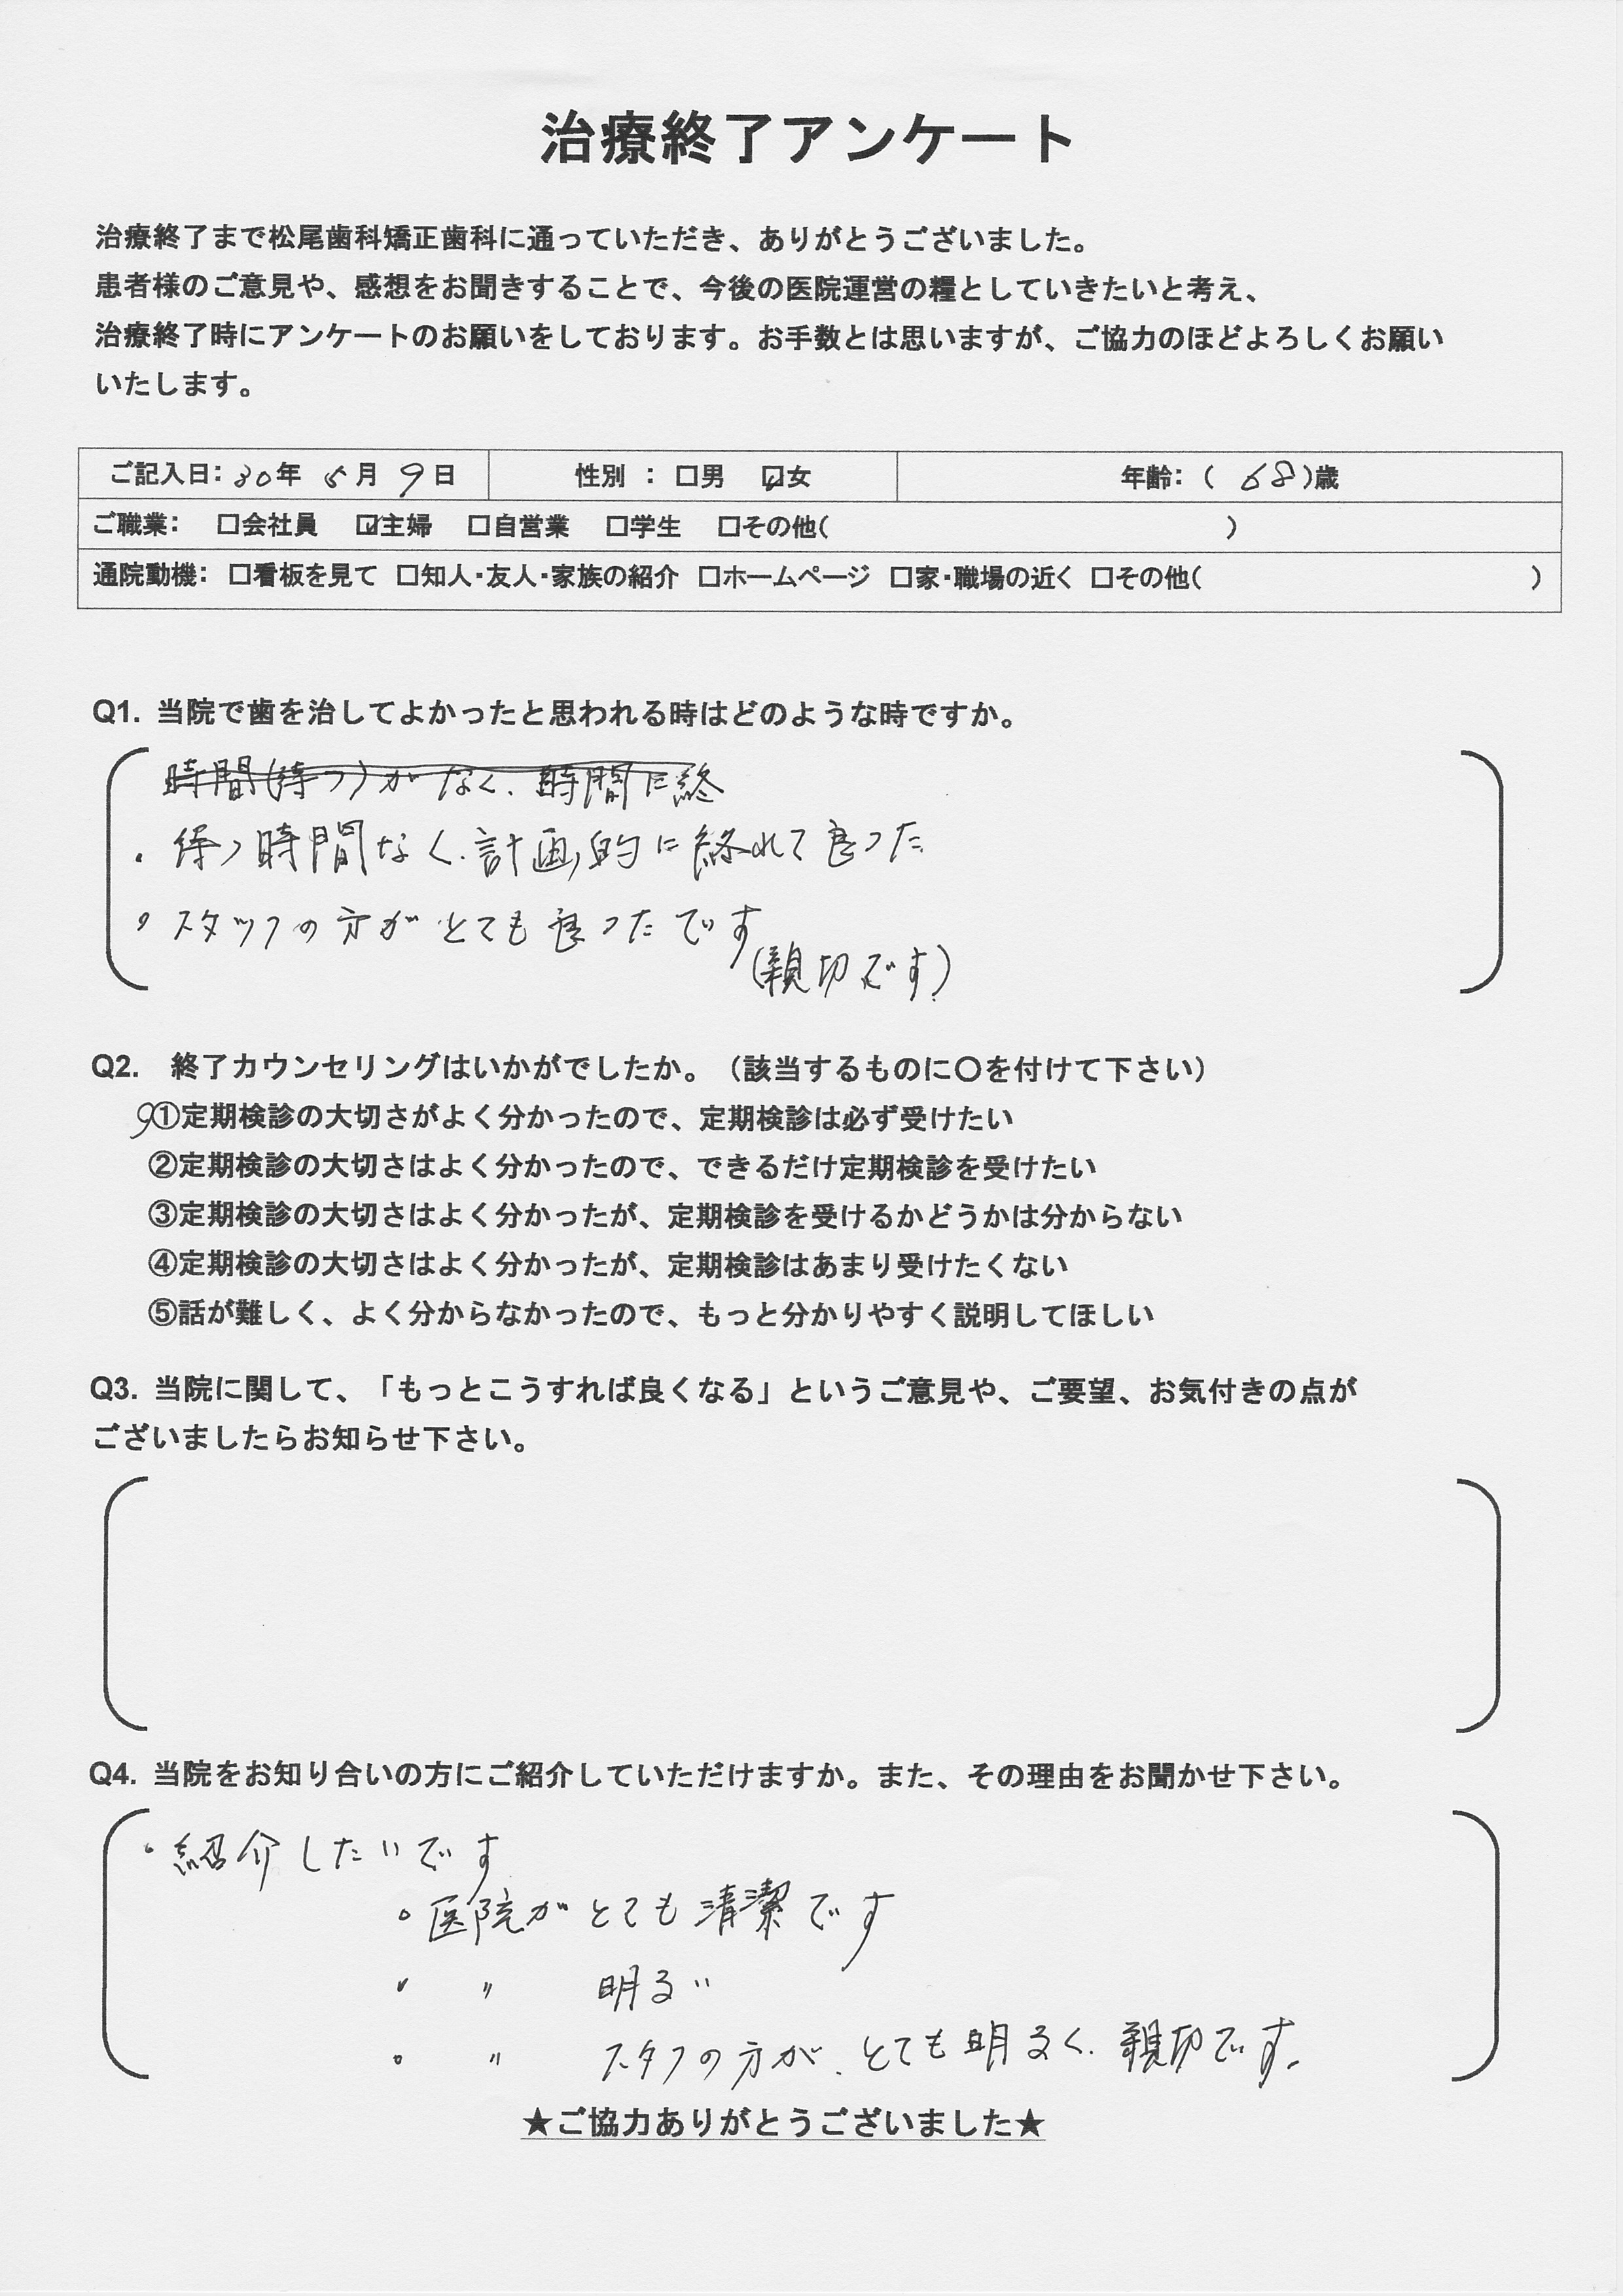 治療終了アンケート
治療終了まで松尾歯科矯正歯科に通っていただき、ありがとうございました。
患者様のご意見や、感想をお聞きすることで、今後の医院運営の糧としていきたいと考え、
治療終了時にアンケートのお願いをしております。お手数とは思いますが、ご協力のほどよろしくお願い
いたします。
ご記入日：30年 月 9日 性別 ： □男 ☑女 年齢：（ 68 ）歳
ご職業： □会社員 ☑主婦 □自営業 □学生 □その他（ ）
通院動機： □看板を見て □知人・友人・家族の紹介 □ホームページ □家・職場の近く □その他（ ）
Q1. 当院で歯を治してよかったと思われる時はどのような時ですか。
時間(待つ)がなく、時間に終
・待つ時間なく、計画的に終れて良った
・スタッフの方がとても良ったです
(親切です)
Q2. 終了カウンセリングはいかがでしたか。（該当するものに〇を付けて下さい）
①定期検診の大切さがよく分かったので、定期検診は必ず受けたい
②定期検診の大切さはよく分かったので、できるだけ定期検診を受けたい
③定期検診の大切さはよく分かったが、定期検診を受けるかどうかは分からない
④定期検診の大切さはよく分かったが、定期検診はあまり受けたくない
⑤話が難しく、よく分からなかったので、もっと分かりやすく説明してほしい
Q3. 当院に関して、「もっとこうすれば良くなる」というご意見や、ご要望、お気付きの点が
ございましたらお知らせ下さい。
Q4. 当院をお知り合いの方にご紹介していただけますか。また、その理由をお聞かせ下さい。
・紹介したいです
。医院がとても清潔です
・ 〃 明るい
。 〃 スタフの方が、とても明るく、親切です。
★ご協力ありがとうございました★